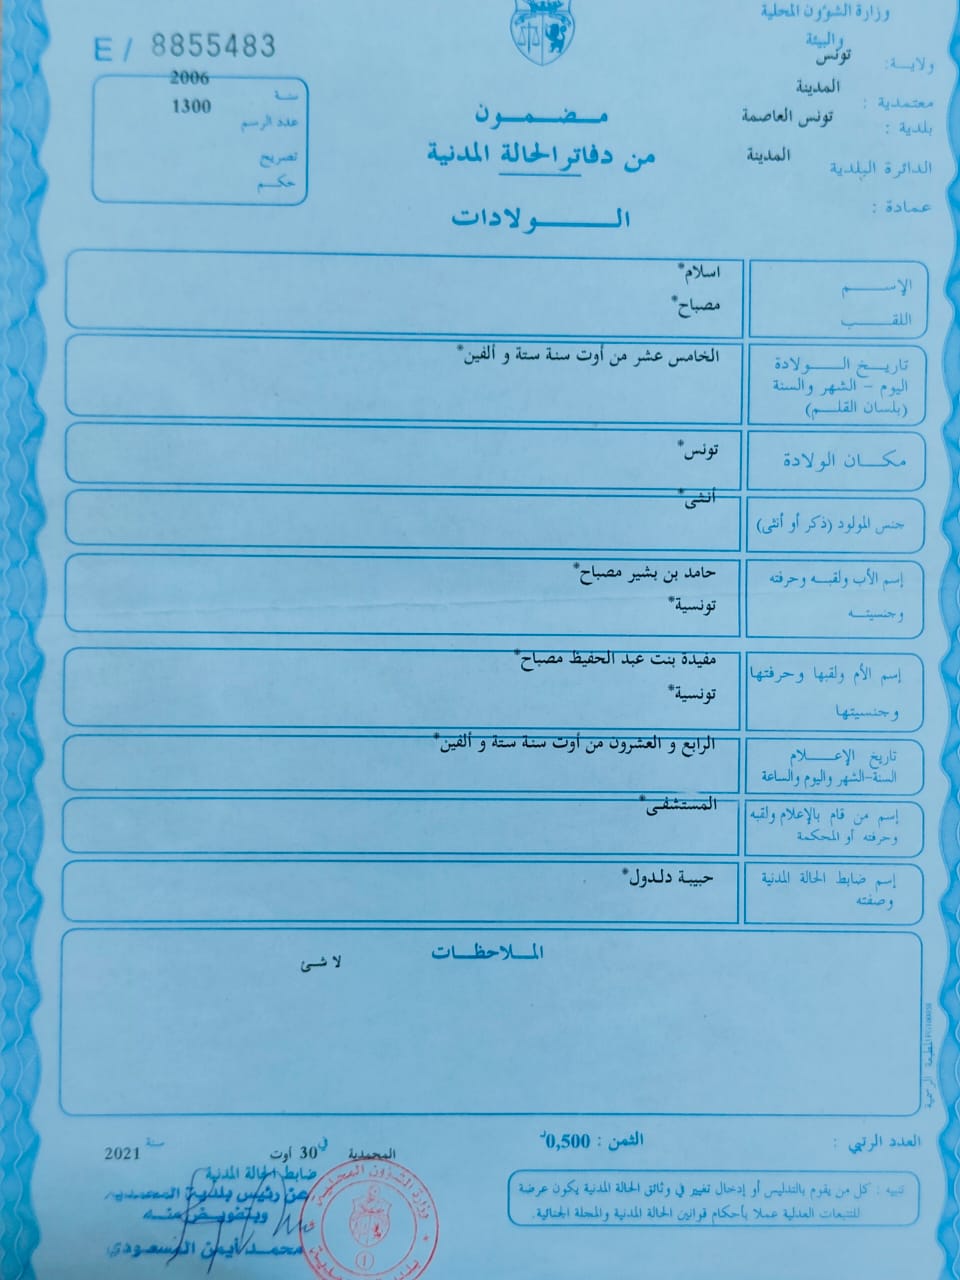 وزارة الشؤون المحلية
والبيئة
ولاية: تونس
معتمدية : المدينة
بلدية : تونس العاصمة
الدائرة البلدية المدينة
عمادة :
E / 8855483
سنة 2006
عدد الرسم 1300
تصريح
حكم
مضمون
من دفاتر الحالة المدنية
الولادات
الإسم اسلام*
اللقب مصباح*
تاريخ الولادة الخامس عشر من أوت سنة ستة و ألفين*
اليوم - الشهر والسنة
(بلسان القلم)
مكان الولادة تونس*
جنس المولود (ذكر أو أنثى) أنثى*
إسم الأب ولقبه وحرفته حامد بن بشير مصباح*
وجنسيته تونسية*
إسم الأم ولقبها وحرفتها مفيدة بنت عبد الحفيظ مصباح*
وجنسيتها تونسية*
تاريخ الإعلام الرابع و العشرون من أوت سنة ستة و ألفين*
السنة-الشهر واليوم والساعة
إسم من قام بالإعلام ولقبه المستشفى*
وحرفته أو المحكمة
إسم ضابط الحالة المدنية حبيبة دلدول*
وصفته
الملاحظات
لا شئ
المطبعة الرسمية
العدد الرتبي :
الثمن : 0,500د
المحمدية في 30 أوت سنة 2021
ضابط الحالة المدنية
عن رئيس بلدية المحمدية
وبتفويض منه
محمد أيمن المسعودي
وزارة الشؤون المحلية
تنبيه : كل من يقوم بالتدليس أو إدخال تغيير في وثائق الحالة المدنية يكون عرضة
للتتبعات العدلية عملا بأحكام قوانين الحالة المدنية والمجلة الجنائية.